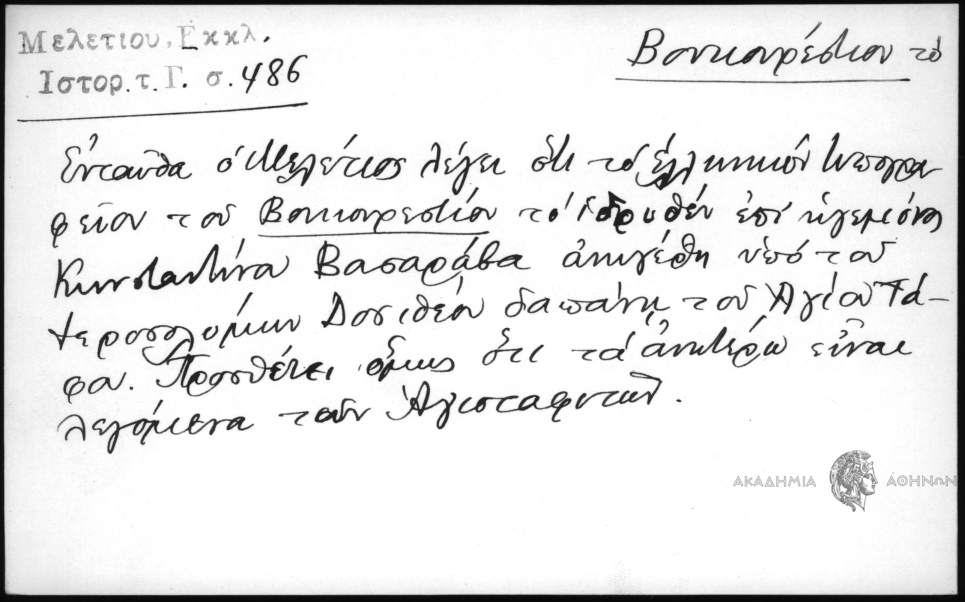 Μελετίου, Εκκλ.
Ιστορ. τ. Γ. σ. 486
Βουκουρέστιον τὸ
Ἐνταῦθα ὁ Μελέτιος λέγει ὅτι τὸ ἑλληνικὸν τυπογρα
φεῖον τοῦ Βουκουρεστίου τὸ ἱδρυθὲν ἐπὶ ἡγεμόνος
Κωνσταντίνου Βασαράβα ὑπὸ τοῦ
Ἱεροσολύμων Δοσιθέου δαπάνῃ τοῦ Ἁγίου Τά-
φου. Προσθέτει ὅμως ὅτι τὰ ἀνωτέρω εἶναι
λεγόμενα τῶν Ἁγιοταφιτῶν.
ΑΚΑΔΗΜΙΑ ΑΘΗΝΩΝ